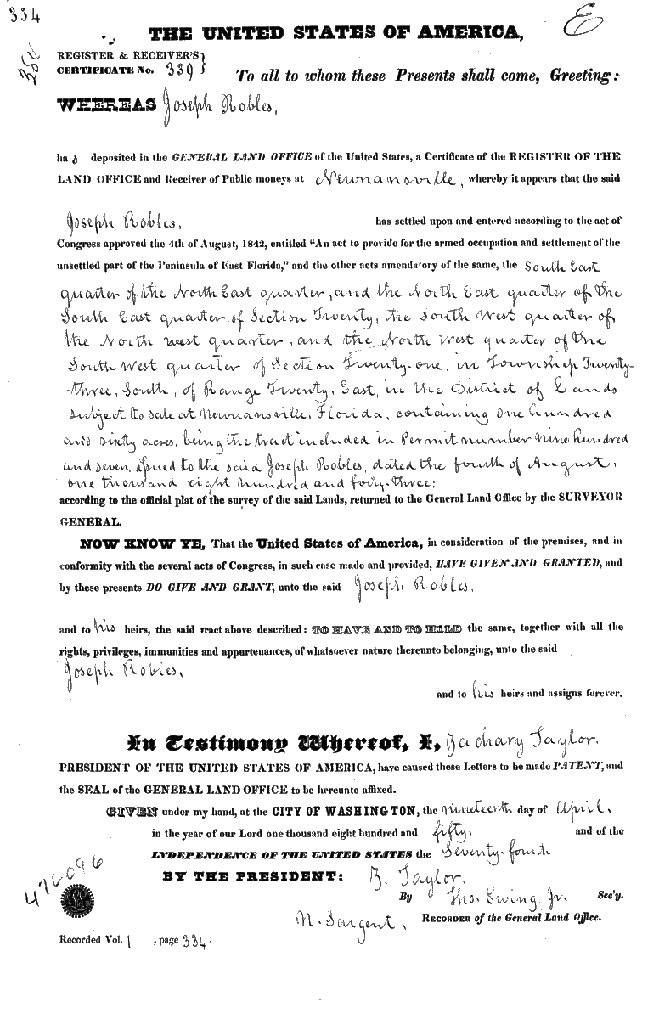 334
THE UNITED STATES OF AMERICA,
E
REGISTER & RECEIVER'S
CERTIFICATE No. 339
To all to whom these Presents shall come, Greeting:
WHEREAS Joseph Robles,
ha s deposited in the GENERAL LAND OFFICE of the United States, a Certificate of the REGISTER OF THE
LAND OFFICE and Receiver of Public moneys at Newnansville, whereby it appears that the said
Joseph Robles, has settled upon and entered according to the act of
Congress approved the 4th of August, 1842, entitled "An act to provide for the armed occupation and settlement of the
unsettled part of the Peninsula of East Florida," and the other acts amendatory of the same, the South East
quarter of the North East quarter, and the North East quarter of the
South East quarter of Section Twenty, the South West quarter of
the North west quarter, and the North West quarter of the
South west quarter of Section Twenty-one, in Township Twenty-
three, South, of Range Twenty, East, in the District of Lands
subject to sale at Newnansville, Florida, containing One hundred
and sixty acres, being the tract included in Permit number nine hundred
and seven, issued to the said Joseph Robles, dated the fourth of August,
one thousand eight hundred and forty-three:
according to the official plat of the survey of the said Lands, returned to the General Land Office by the SURVEYOR
GENERAL.
NOW KNOW YE, That the United States of America, in consideration of the premises, and in
conformity with the several acts of Congress, in such case made and provided, HAVE GIVEN AND GRANTED, and
by these presents DO GIVE AND GRANT, unto the said Joseph Robles,
and to his heirs, the said tract above described: TO HAVE AND TO HOLD the same, together with all the
rights, privileges, immunities and appurtenances, of whatsoever nature thereunto belonging, unto the said
Joseph Robles,
and to his heirs and assigns forever.
In Testimony Whereof, I, Zachary Taylor.
PRESIDENT OF THE UNITED STATES OF AMERICA, have caused these Letters to be made PATENT, and
the SEAL of the GENERAL LAND OFFICE to be hereunto affixed.
GIVEN under my hand, at the CITY OF WASHINGTON, the nineteenth day of April,
in the year of our Lord one thousand eight hundred and fifty, and of the
INDEPENDENCE OF THE UNITED STATES the Seventy-fourth
BY THE PRESIDENT: Z. Taylor.
By Tho. Ewing Jr. Sec'y.
N. Sargent, RECORDER of the General Land Office.
476096
Recorded Vol. 1, page 334